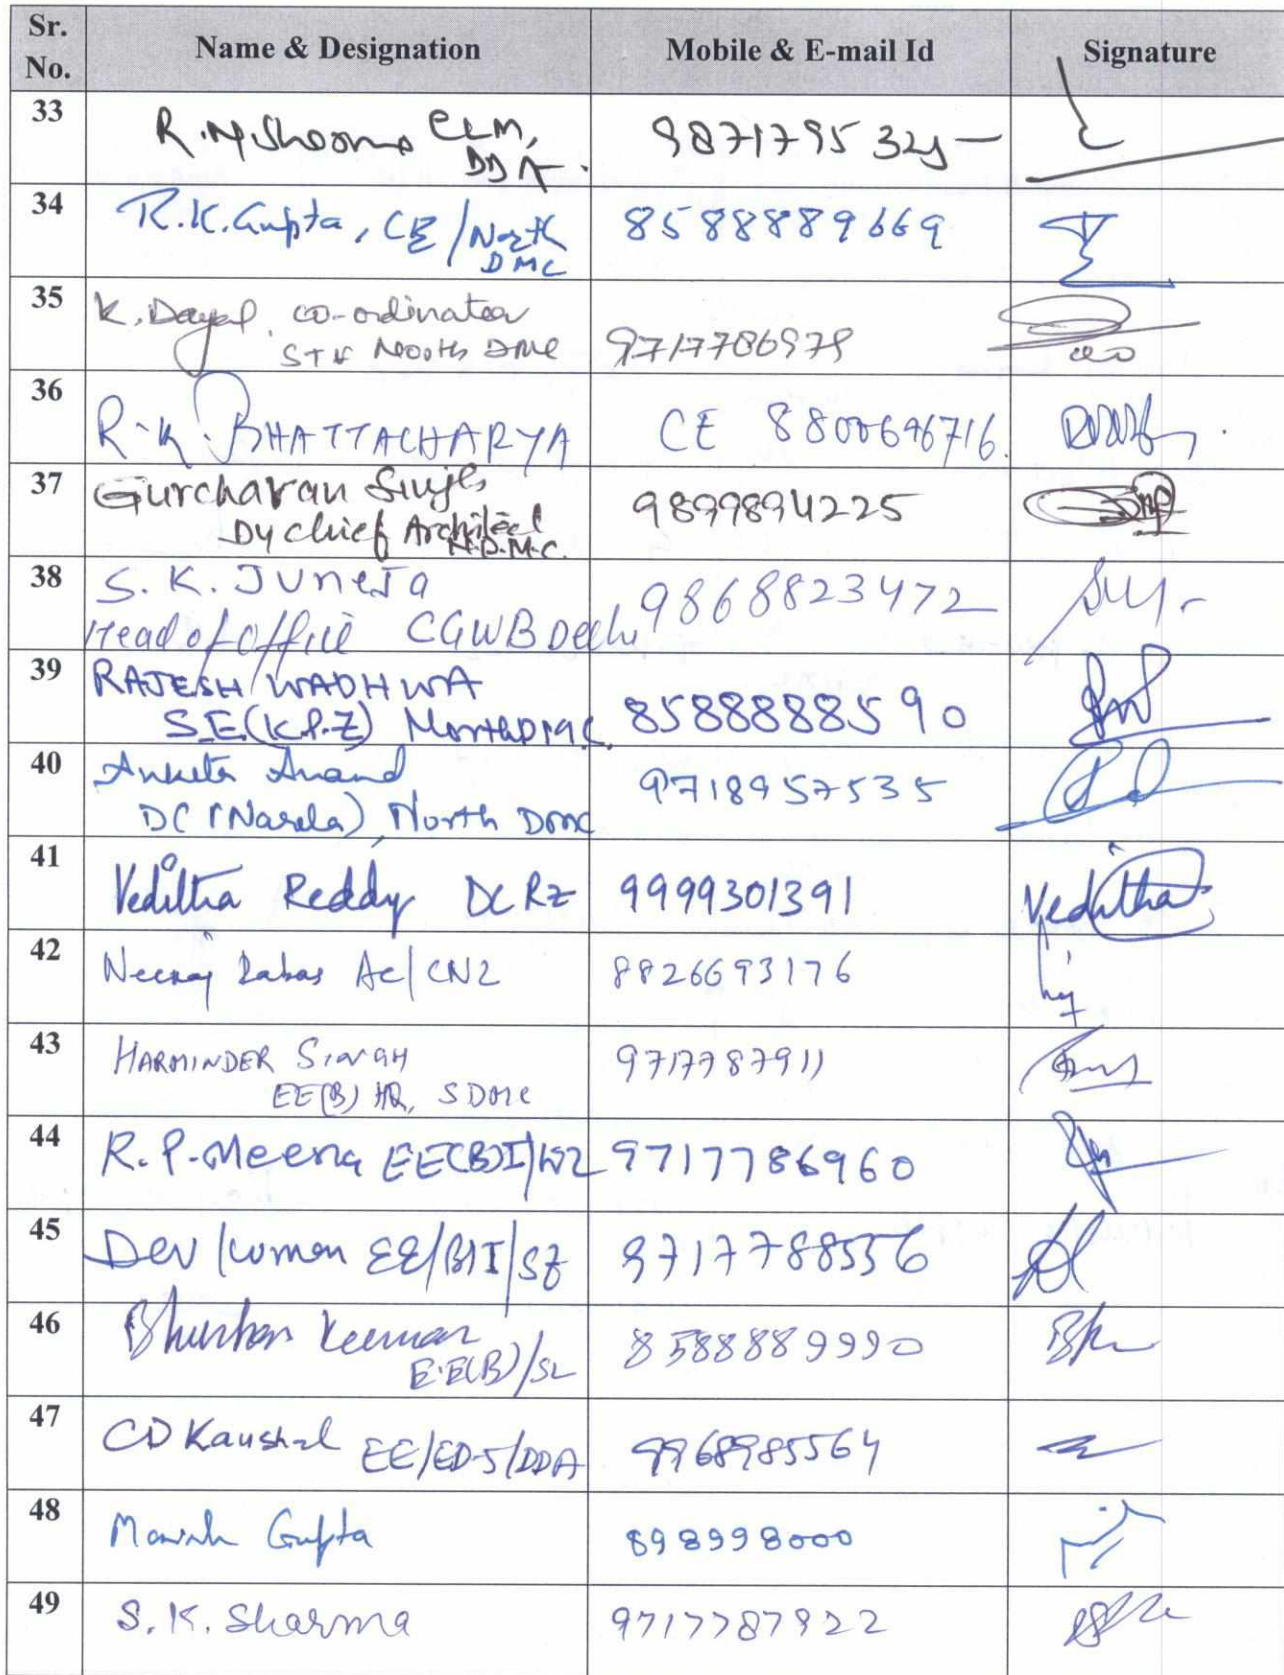 Sr. No. Name & Designation Mobile & E-mail Id Signature
33 R.N. Sharma CLM, 98717953
DDA.
34 R.K. Gupta, CE/North 8588889669
DMC
35 K. Dayal, co-ordinator
STF North DMC 9717786979
36 R.K. BHATTACHARYA CE 8800696716.
37 Gurcharan Singh 9899894225
Dy Chief Architect
N.D.M.C.
38 S. K. JUNEJA 9868823472
Head of Office CGWB Delhi
39 RAJESH WADHWA
S.E.(K.P.Z) North DMC. 8588888590
40 Ankita Anand 9718957535
DC (Narela) North DMC
41 Veditha Reddy DC RZ 9999301391 Veditha
42 Neeraj Labas AC/CNZ 8826693176
43 HARMINDER SINGH 9717787911
EE(B) HQ, SDMC
44 R. P. Meena EE(B)I/WZ 9717786960
45 Dev Kumar EE/BII/SZ 9717788556
46 Bhushan Kumar 8588889990
E.E(B)/SZ
47 CD Kaushal EE/ED-5/DDA 9968985564
48 Manish Gupta 898998000
49 S. K. Sharma 9717787922